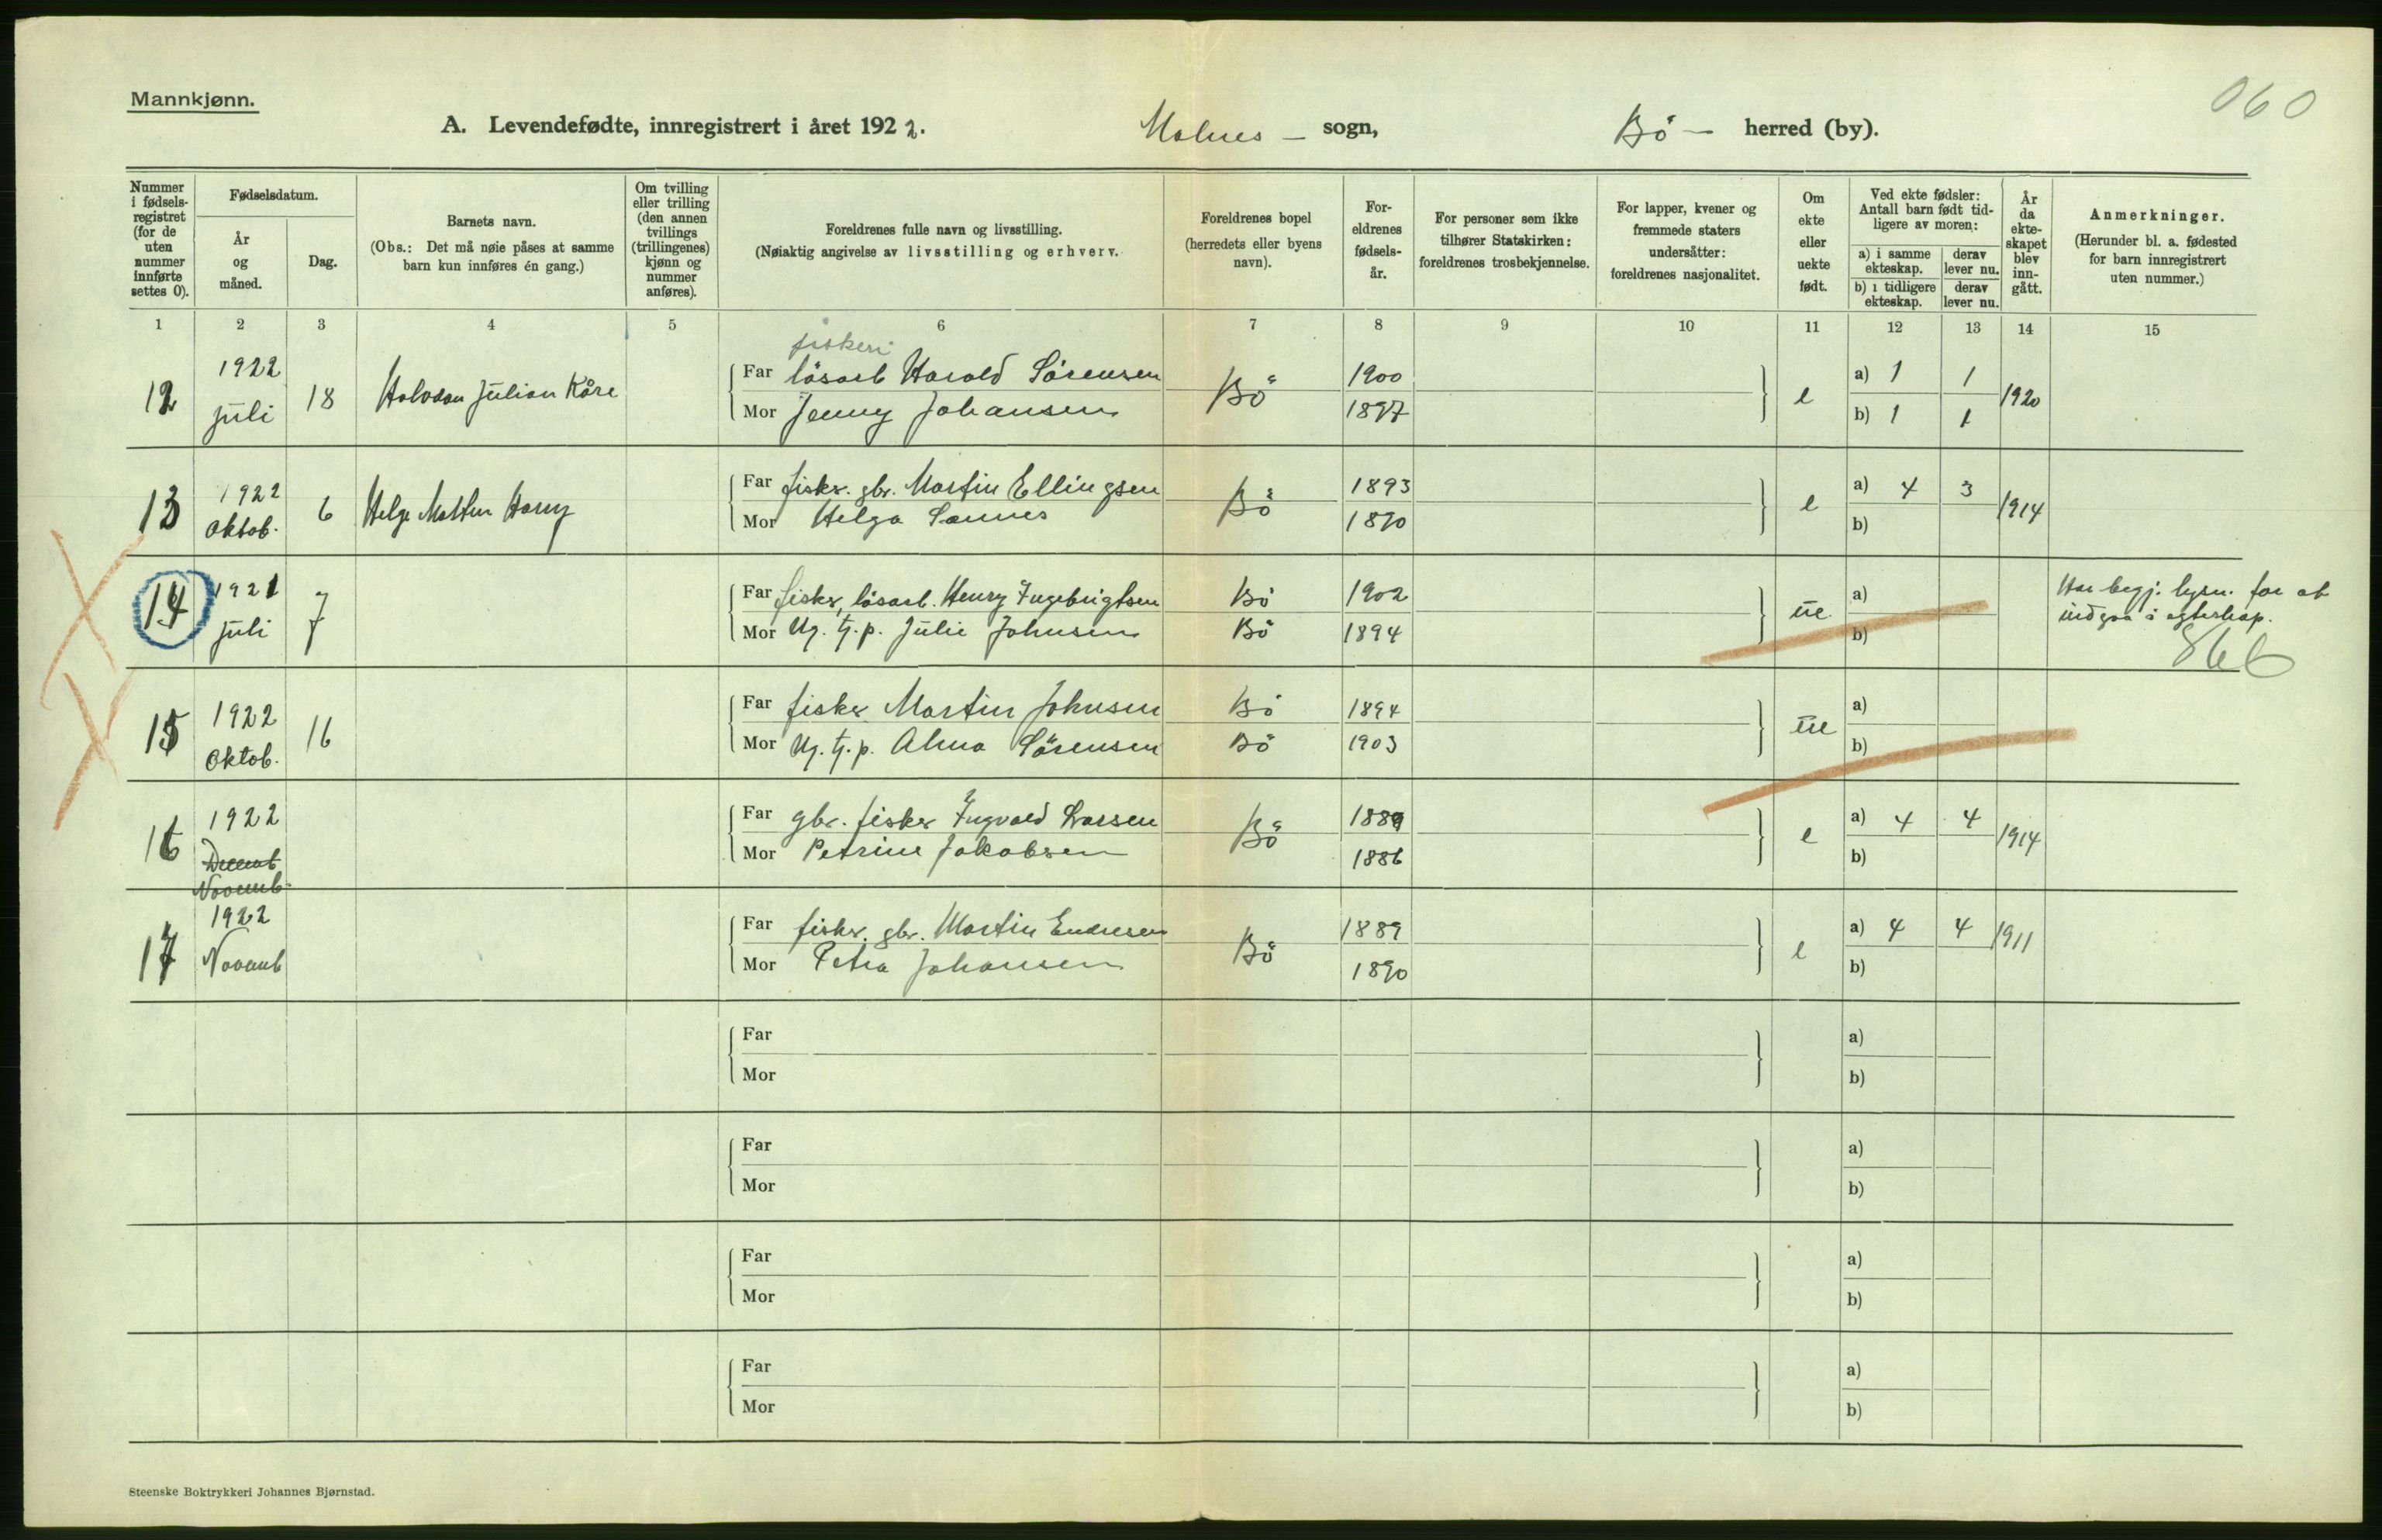 060
Mannkjønn.
A. Levendefødte, innregistrert i året 1922. Malnes – sogn, Bö – herred (by).
Nummer i fødsels- registret (for de uten nummer innførte settes 0).
Fødselsdatum.
År og måned.
Dag.
Barnets navn.
(Obs.: Det må nøie påses at samme barn kun innføres én gang.)
Om tvilling eller trilling (den annen tvillings (trillingenes) kjønn og nummer anføres).
Foreldrenes fulle navn og livsstilling.
(Nøiaktig angivelse av livsstilling og erhverv.
Foreldrenes bopel (herredets eller byens navn).
For- eldrenes fødsels- år.
For personer sem ikke tilhører Statskirken: foreldrenes trosbekjennelse.
For lapper, kvener og fremmede staters undersåtter: foreldrenes nasjonalitet.
Om ekte eller uekte født.
Ved ekte fødsler: Antall barn født tid- ligere av moren:
a) i samme ekteskap.
derav lever nu.
b) i tidligere ekteskap.
derav lever nu.
År da ekte- skapet blev inn- gått.
Anmerkninger.
(Herunder bl. a. fødested for barn innregistrert uten nummer.)
1 2 3 4 5 6 7 8 9 10 11 12 13 14 15
fiskeri
12 1922 juli 18 Halvdan Julian Kåre Far lösarb Harald Sörensen Bö 1900 e a) 1 1 1920
Mor Jenny Johansen 1897 b) 1 1
13 1922 Oktob. 6 Helge Morten Harry Far fisker. gbr. Martin Ellingsen Bö 1893 e a) 4 3 1914
Mor Helga Sannes 1890 b)
14 1921 juli 7 Far fisker, lösarb. Henry Ingebrigtsen Bö 1902 ue a) Har begj. lysn. for at
Mor Ug. tj. p. Julie Johnsen Bö 1894 b) indgaa i egteskap.
866
15 1922 Oktob. 16 Far fisker Martin Johnsen Bö 1894 ue a)
Mor Ug. tj. p. Alma Sörensen Bö 1903 b)
16 1922 Decemb Novemb. Far gbr. fisker Ingvald Larsen Bö 1889 e a) 4 4 1914
Mor Petrine Jakobsen 1886 b)
17 1922 Novemb Far fisker. gbr. Martin Endresen Bö 1889 e a) 4 4 1911
Mor Petra Johansen 1890 b)
Far a)
Mor b)
Far a)
Mor b)
Far a)
Mor b)
Far a)
Mor b)
Steenske Boktrykkeri Johannes Bjørnstad.